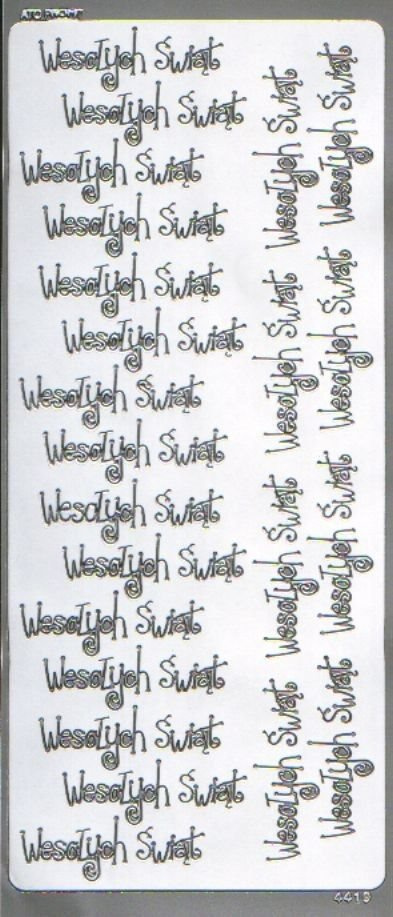 Wesołych Świąt
Wesołych Świąt
Wesołych Świąt
Wesołych Świąt
Wesołych Świąt
Wesołych Świąt
Wesołych Świąt
Wesołych Świąt
Wesołych Świąt
Wesołych Świąt
Wesołych Świąt
Wesołych Świąt
Wesołych Świąt
Wesołych Świąt
Wesołych Świąt
Wesołych Świąt
Wesołych Świąt
Wesołych Świąt
Wesołych Świąt
Wesołych Świąt
Wesołych Świąt
Wesołych Świąt
Wesołych Świąt
4419